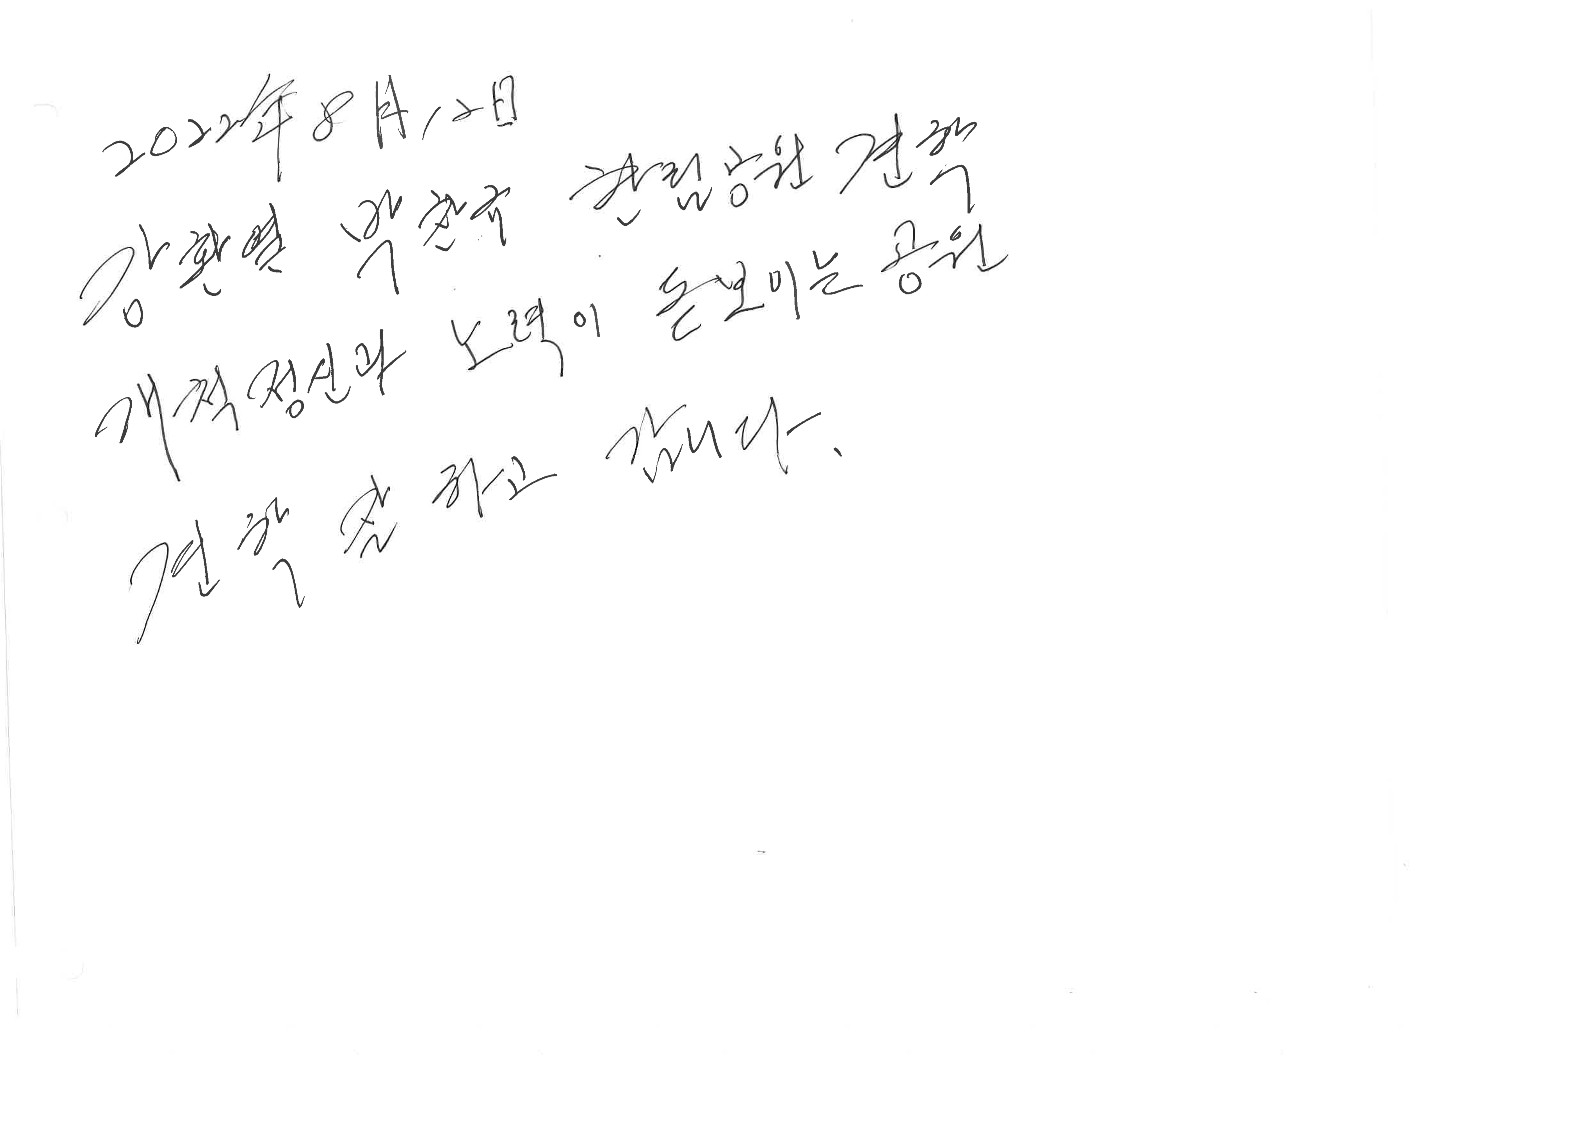 2022年 8月 12日
강환 박찬규 한림공원 견학
개척정신과 노력이 돋보이는 공원
견학 잘 하고 갑니다.